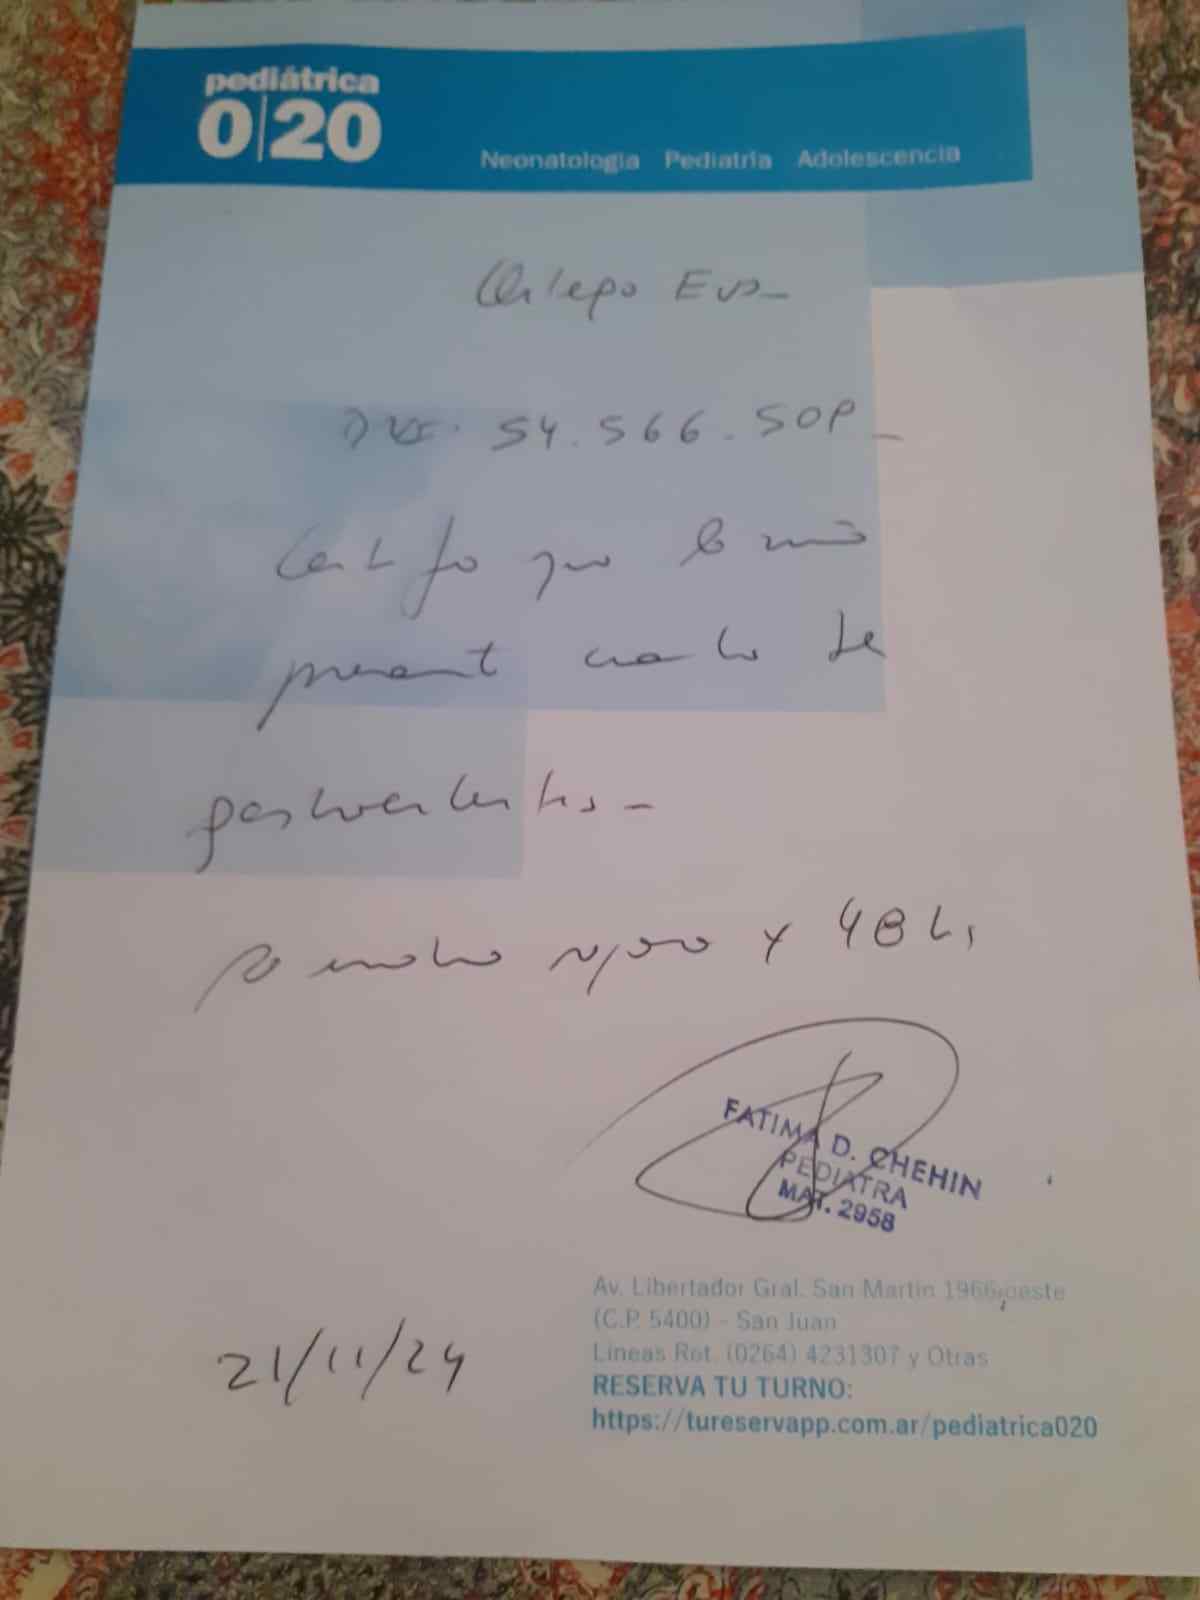 pediátrica
0|20
Neonatología Pediatría Adolescencia
Eva
DNI: 54.566.509
Certifico que la niña
presenta cuadro de
gastroenteritis
Se indica reposo x 48 hs
FATIMA D. CHEHIN
PEDIATRA
MAT. 2958
21/11/24
Av. Libertador Gral. San Martín 1966 oeste
(C.P. 5400) - San Juan
Líneas Rot. (0264) 4231307 y Otras
RESERVA TU TURNO:
https://tureservapp.com.ar/pediatrica020